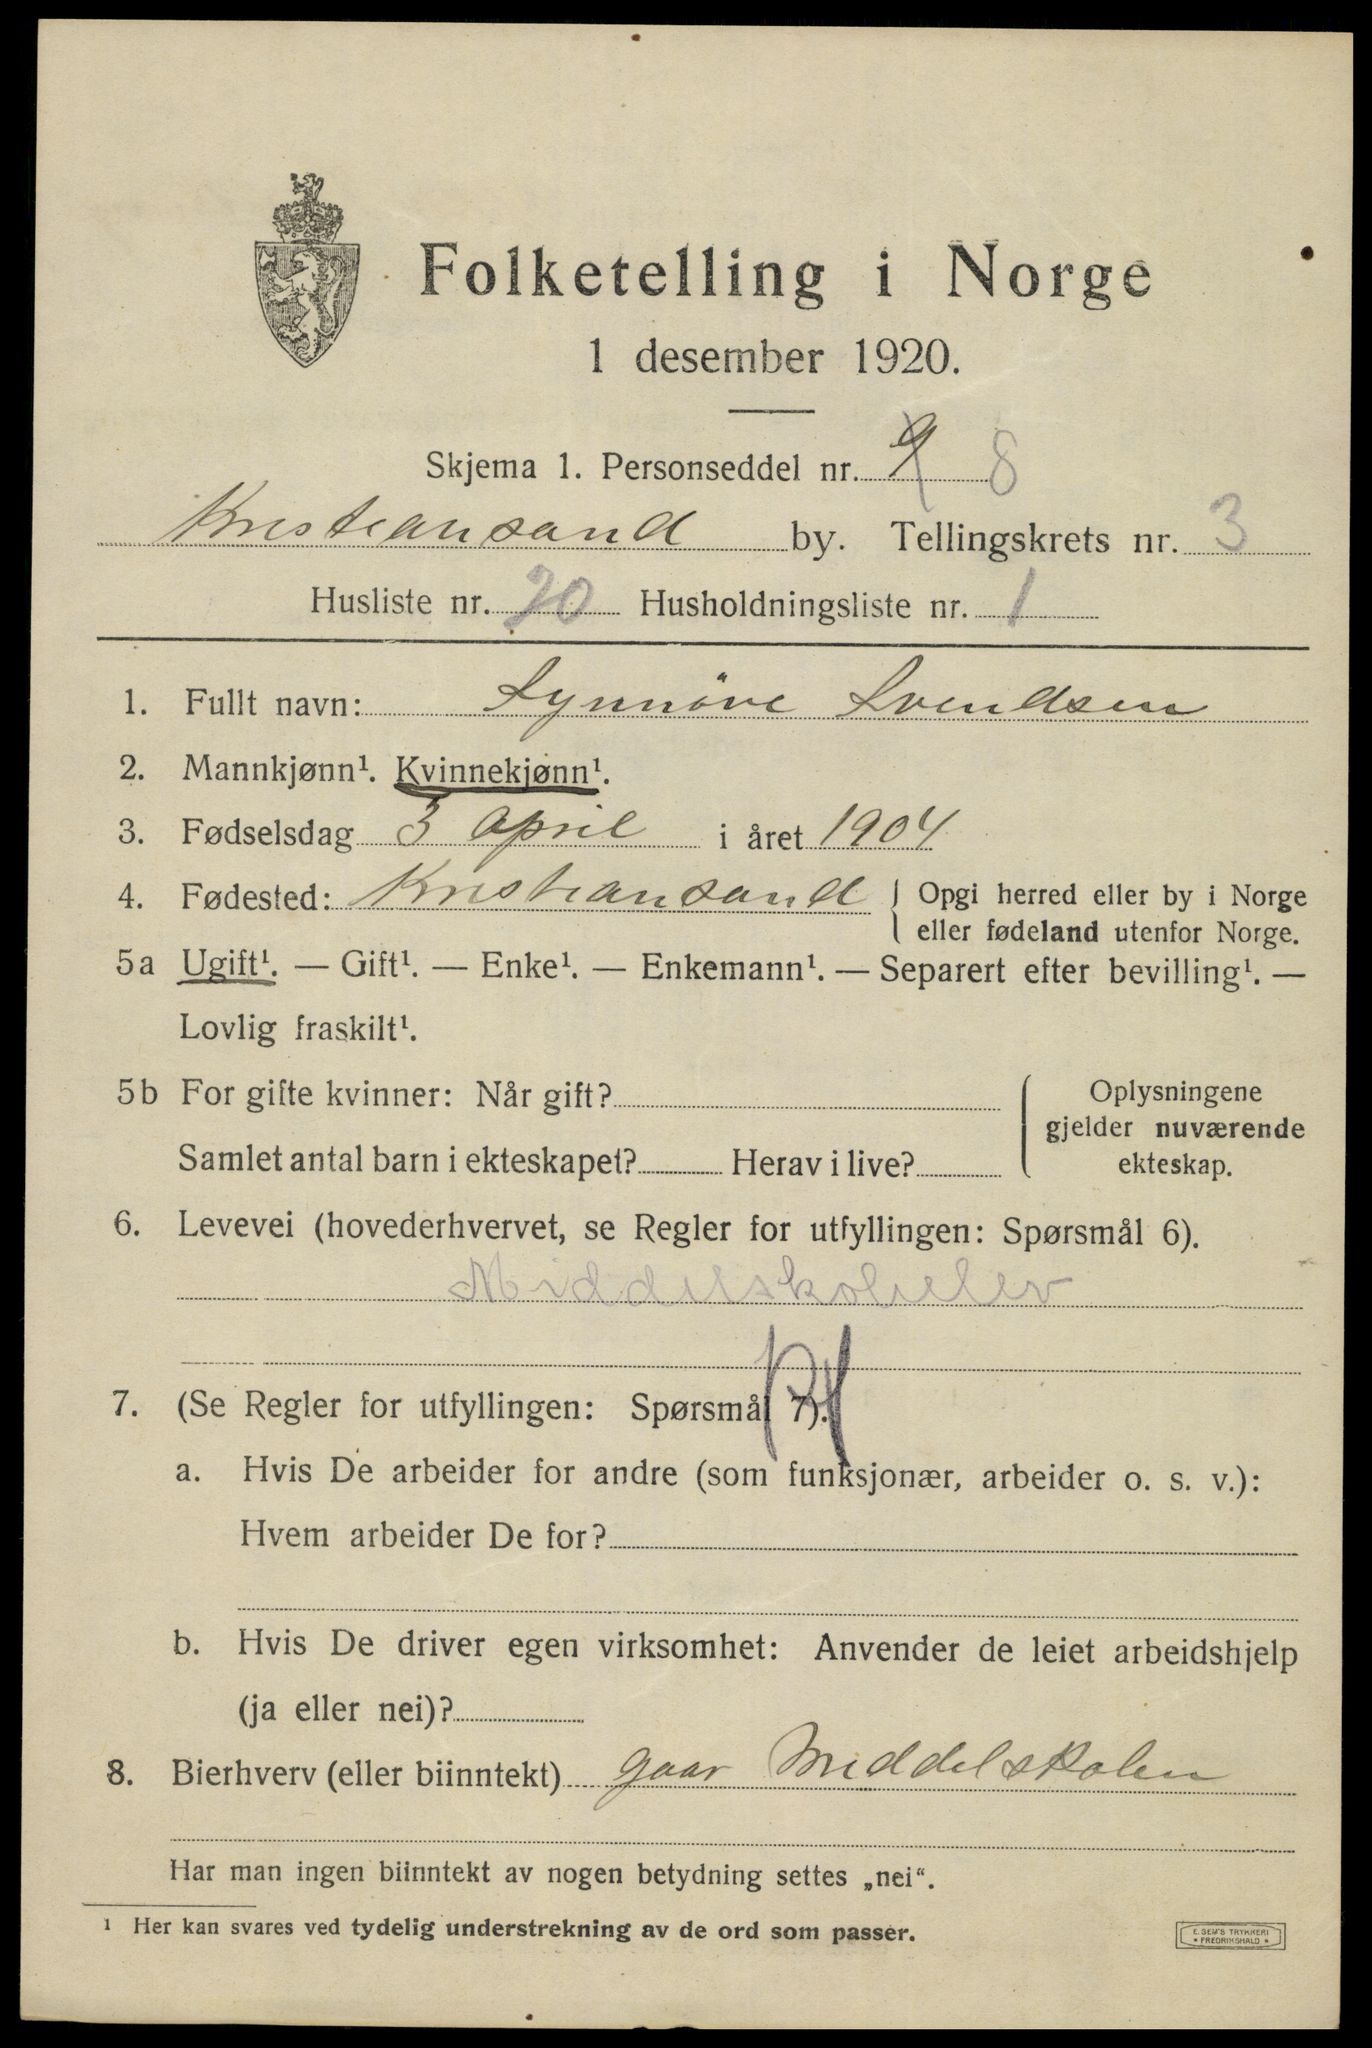 Folketelling i Norge
1 desember 1920.
Skjema 1. Personseddel nr. 9 8
Kristiansand by. Tellingskrets nr. 3
Husliste nr. 20 Husholdningsliste nr. 1
1. Fullt navn: Synnöve Svendsen
2. Mannkjønn¹. Kvinnekjønn¹.
3. Fødselsdag 3 april i året 1904
4. Fødested: Kristiansand { Opgi herred eller by i Norge
eller fødeland utenfor Norge.
5a Ugift¹. — Gift¹. — Enke¹. — Enkemann¹. — Separert efter bevilling¹. —
Lovlig fraskilt¹.
5b For gifte kvinner: Når gift? { Oplysningene
gjelder nuværende
Samlet antal barn i ekteskapet? Herav i live? ekteskap.
6. Levevei (hovederhvervet, se Regler for utfyllingen: Spørsmål 6).
Middelskoleelev
7. (Se Regler for utfyllingen: Spørsmål 7).
a. Hvis De arbeider for andre (som funksjonær, arbeider o. s. v.):
Hvem arbeider De for?
b. Hvis De driver egen virksomhet: Anvender de leiet arbeidshjelp
(ja eller nei)?
8. Bierhverv (eller biinntekt) gaar Middelskolen
Har man ingen biinntekt av nogen betydning settes „nei“.
¹ Her kan svares ved tydelig understrekning av de ord som passer.
E. SEM'S TRYKKERI
* FREDRIKSHALD *